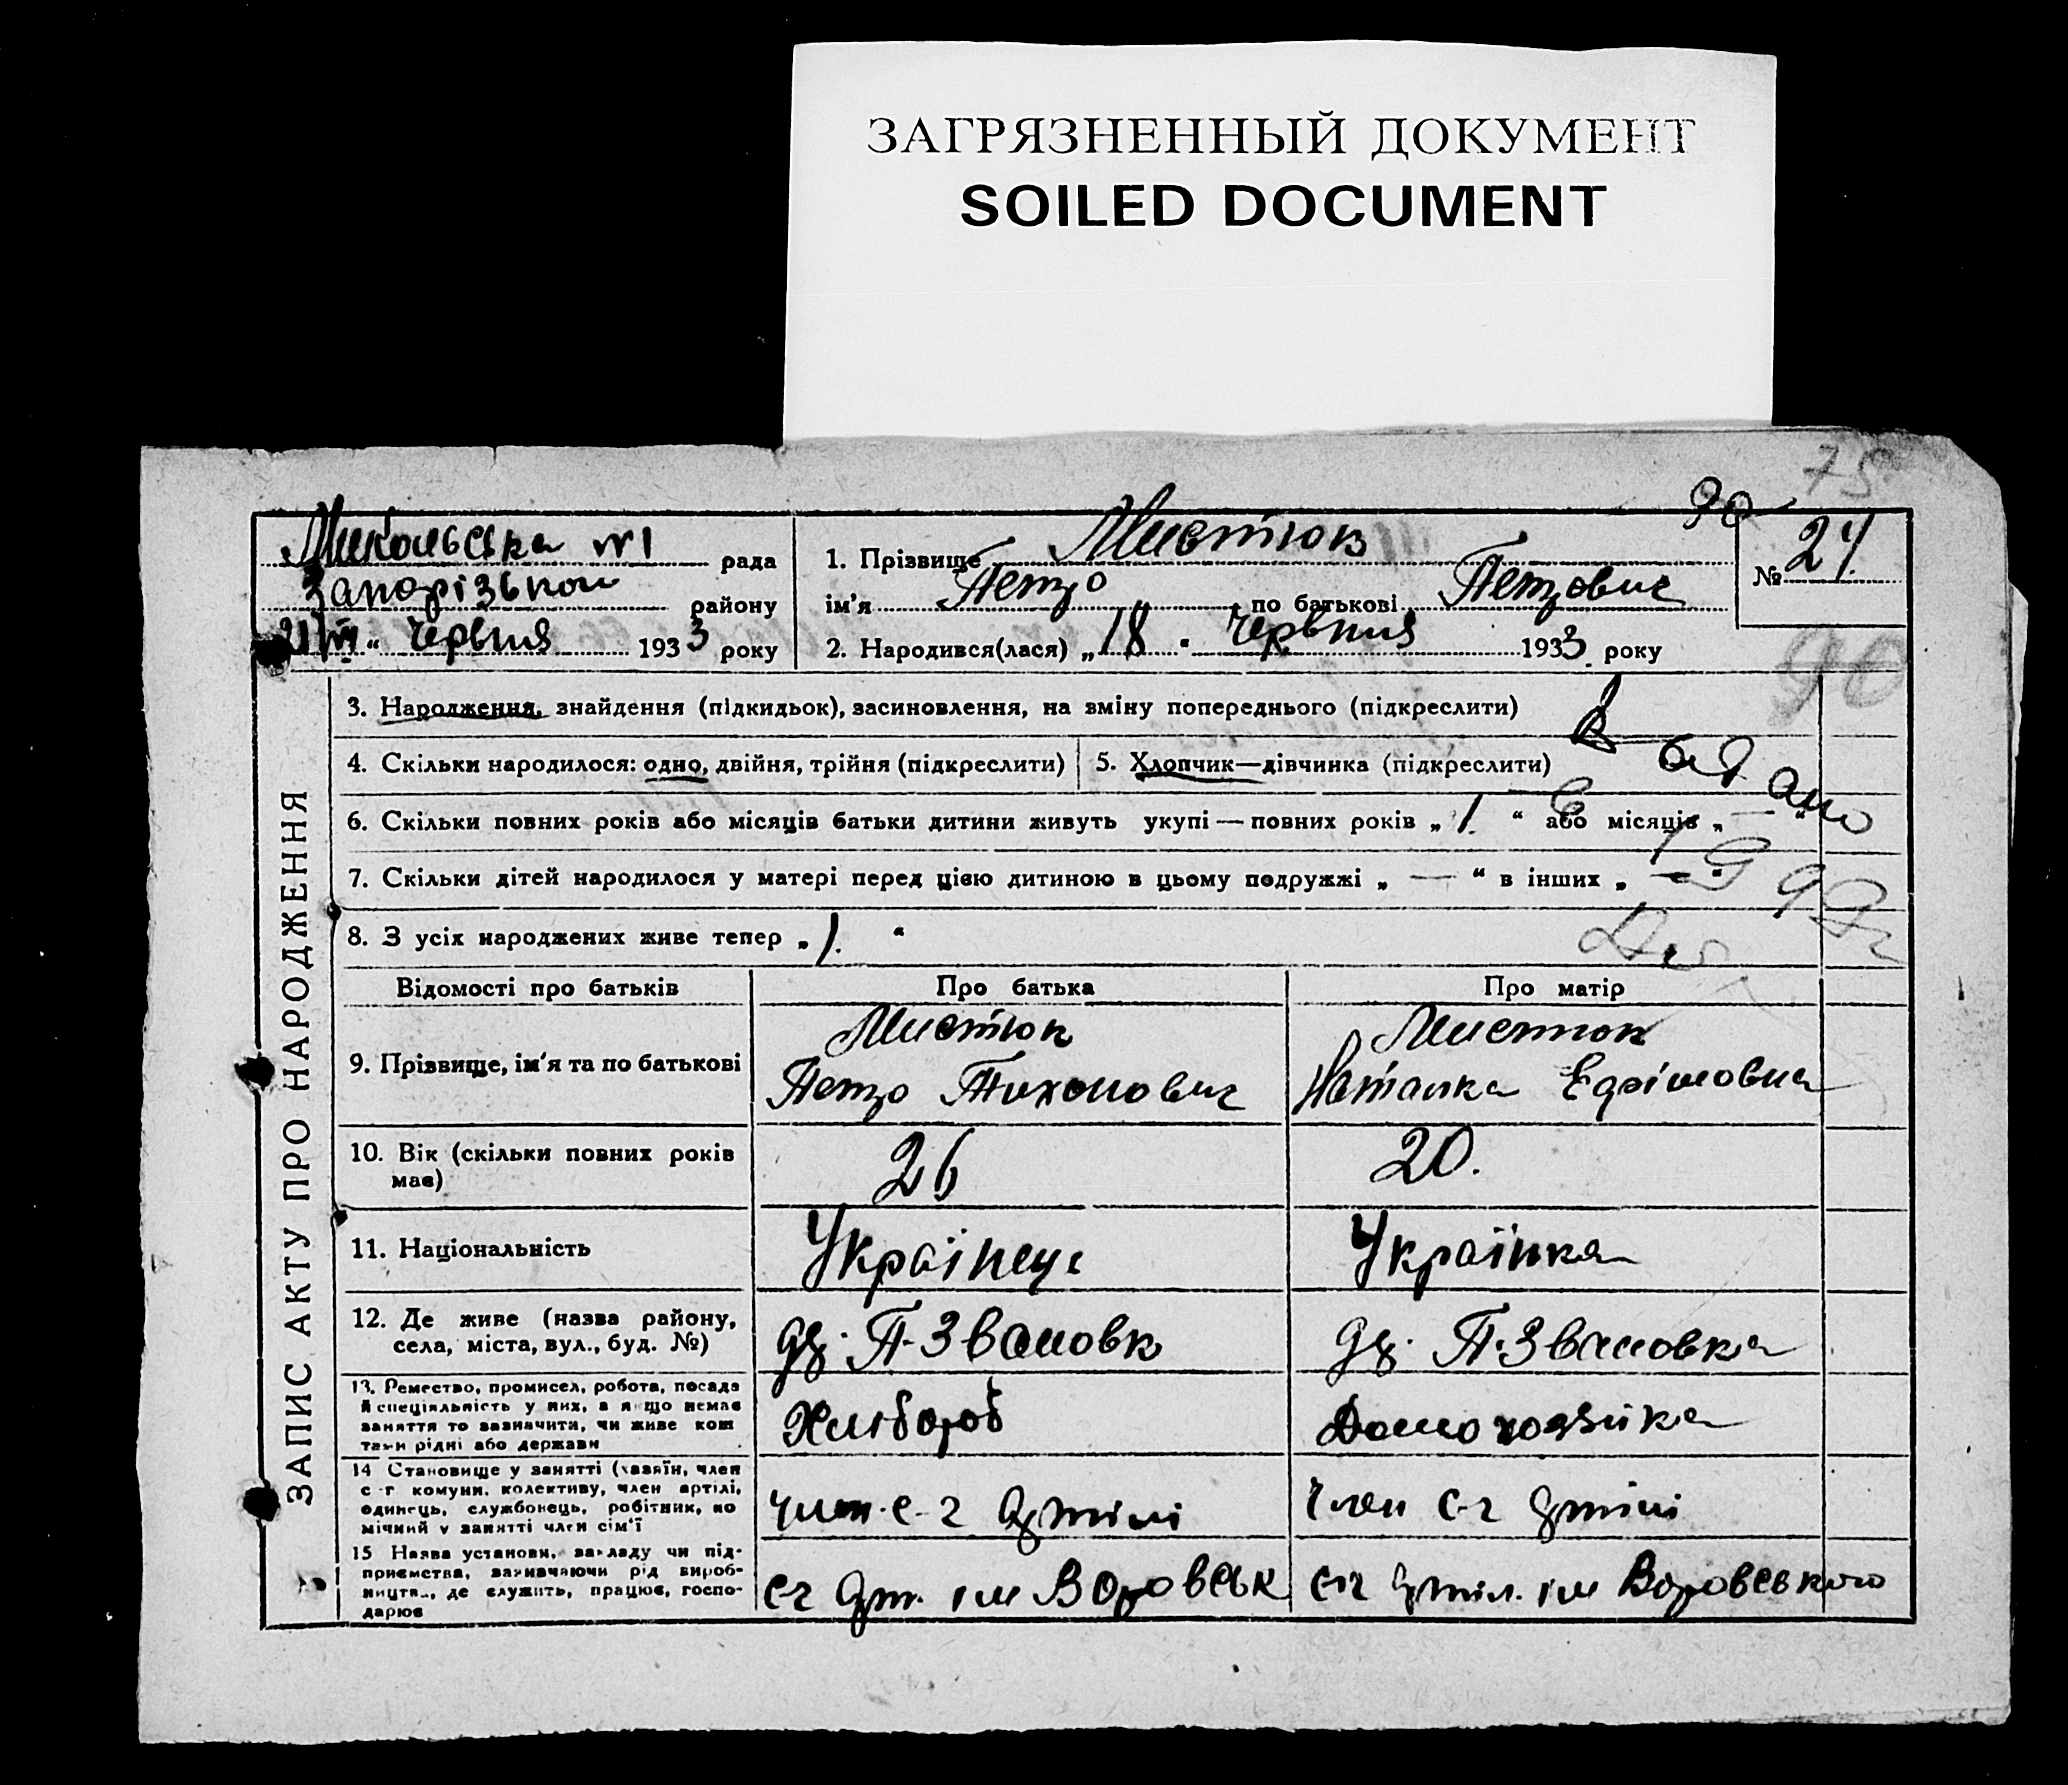 ЗАГРЯЗНЕННЫЙ ДОКУМЕНТ
SOILED DOCUMENT
75
90
Микольська №1 рада
Запорізького району
21/VI “ Червня 1933 року
1. Прізвище Листюк
ім’я Петро по батькові Петрович
2. Народився(лася) „18“ Червня 1933 року
№ 24
90
ЗАПИС АКТУ ПРО НАРОДЖЕННЯ
3. Народження, знайдення (підкидьок), засиновлення, на зміну попереднього (підкреслити)
4. Скільки народилося: одно, двійня, трійня (підкреслити)
5. Хлопчик—дівчинка (підкреслити)
6. Скільки повних років або місяців батьки дитини живуть укупі — повних років „ 1 “ або місяців „ — “
7. Скільки дітей народилося у матері перед цією дитиною в цьому подружжі „ — “ в інших „ — “
8. З усіх народжених живе тепер „ 1. “
Відомості про батьків
Про батька
Про матір
9. Прізвище, ім’я та по батькові
Листюк
Петро Тихонович
Листюк
Наталка Ефрімовна
10. Вік (скільки повних років має)
26
20.
11. Національність
Українець
Українка
12. Де живе (назва району,
села, міста, вул., буд. №)
П-Звановк
П-Звановка
13. Ремество, промисел, робота, посада
й спеціяльність у них, а якщо немає
заняття то зазначити, чи живе кош
тами рідні або держави
Хлібороб
Домохозяйка
14 Становище у занятті (хазяїн, член
с-г комуни, колективу, член артілі,
одинець, службовець, робітник, по
мічний у занятті член сім’ї
член с-г Артілі
Член с-г Артілі
15 Назва установи, закладу чи під-
приємства, зазначаючи рід вироб-
ництв., де служить, працює, госпо-
дарює
с-г Арт. ім Воровськ
с-г Артіл. ім Воровського